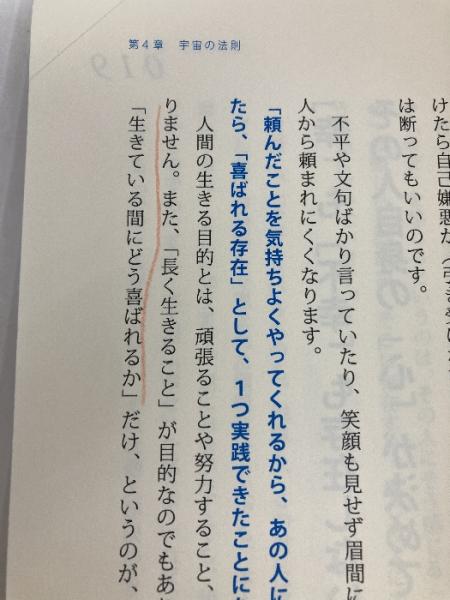 第4章　宇宙の法則
けたら自己嫌悪だ
は断ってもいいのです。
不平や文句ばかり言っていたり、笑顔も見せず眉間に
人から頼まれにくくなります。
「頼んだことを気持ちよくやってくれるから、あの人に
たら、「喜ばれる存在」として、1つ実践できたことにな
人間の生きる目的とは、頑張ることや努力すること、
りません。また、「長く生きること」が目的なのでもあ
「生きている間にどう喜ばれるか」だけ、というのが、